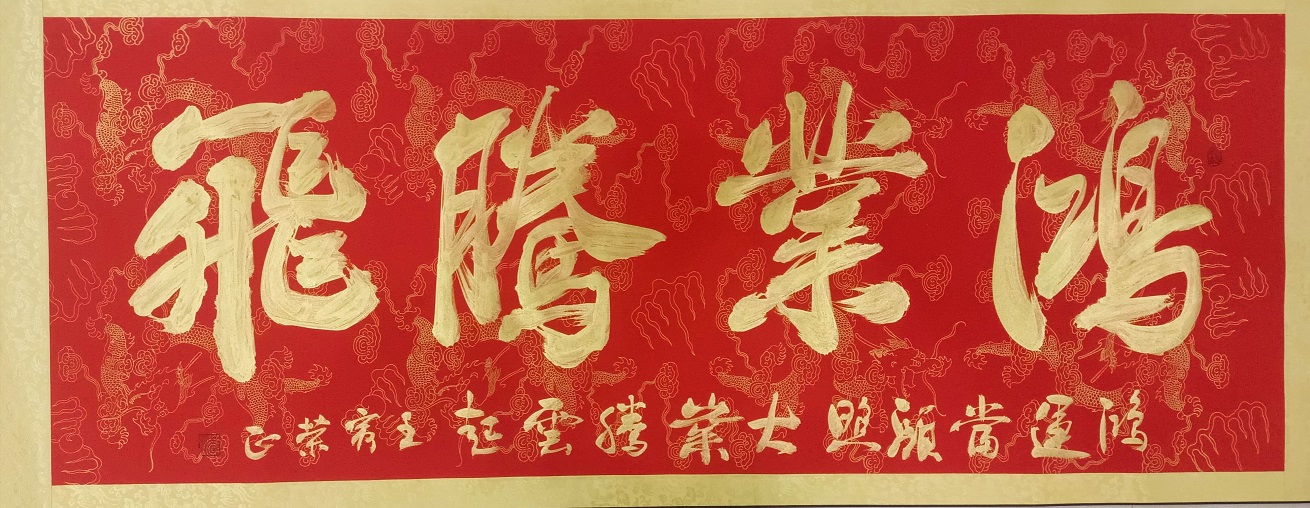 鴻業騰飛
鴻運當頭照大業騰雲起 榮正